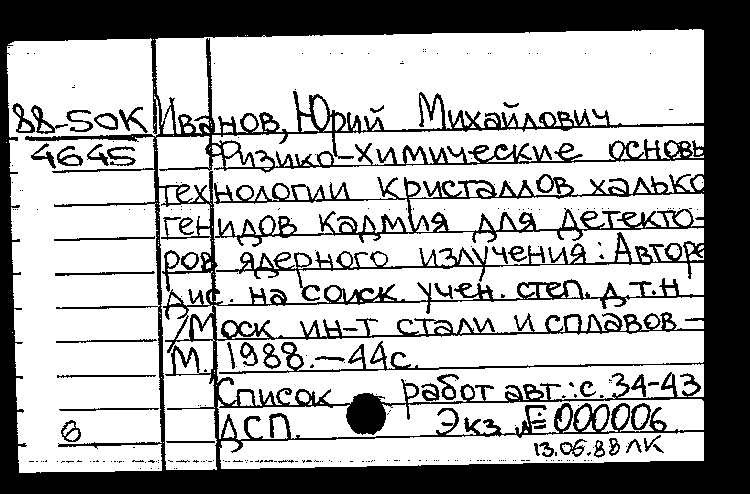 88-5ОК Иванов, Юрий Михайлович.
4645 Физико-химические основы
технологии кристаллов халько
генидов кадмия для детекто-
ров ядерного излучения: Авторе
дис. на соиск. учен. степ. д.т.н.
/Моск. ин-т стали и сплавов.-
М., 1988.-44с.
Список работ авт.: с. 34-43
ДСП. Экз. № 000006
13.06.88 ЛК